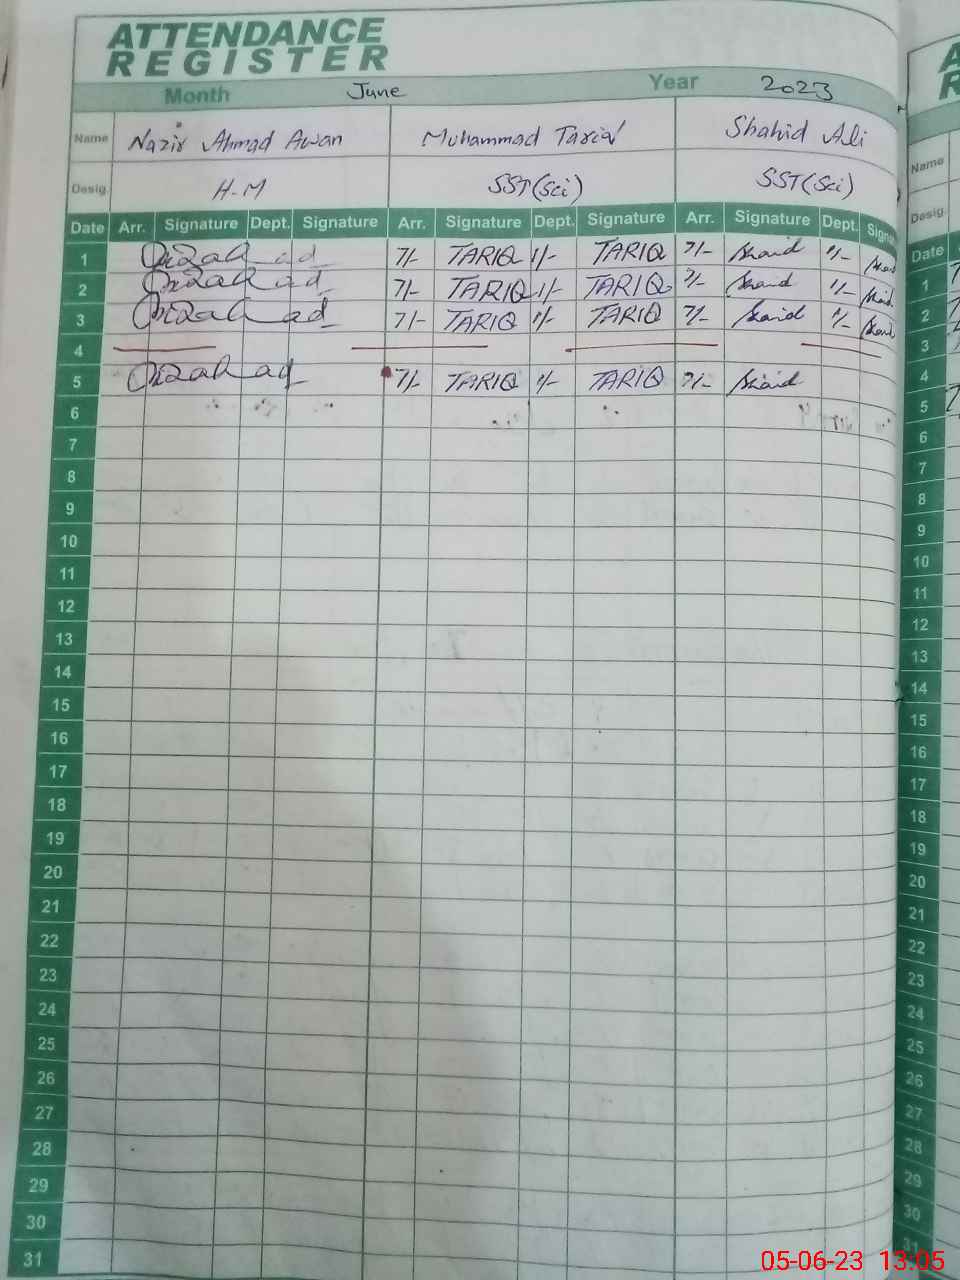 ATTENDANCE
REGISTER
Month June Year 2023
Name Nazir Ahmad Awan Muhammad Tariq Shahid Ali
Desig. H-M SST(Sci) SST(Sci)
Date Arr. Signature Dept. Signature Arr. Signature Dept. Signature Arr. Signature Dept. Signat
1 7/- TARIQ 1/- TARIQ 7/- Shahid 1/-
2 7/- TARIQ 1/- TARIQ 7/- Shahid 1/-
3 7/- TARIQ 1/- TARIQ 7/- Shahid 1/-
4
5 7/- TARIQ 1/- TARIQ 7/- Shahid
6
7
8
9
10
11
12
13
14
15
16
17
18
19
20
21
22
23
24
25
26
27
28
29
30
31
A
R
Name
Desig.
Date
1
2
3
4
5
6
7
8
9
10
11
12
13
14
15
16
17
18
19
20
21
22
23
24
25
26
27
28
29
30
31
05-06-23 13:05